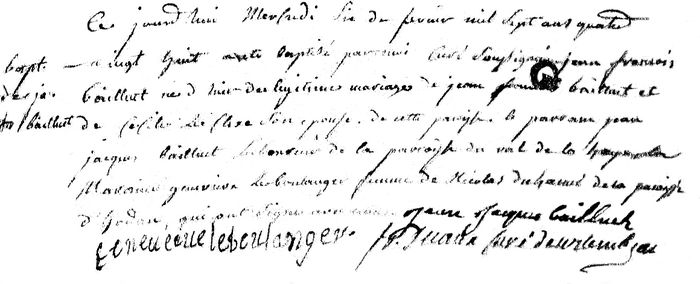 Ce jourdhui Mercredi Six de fevrier mil Sept cent quatre
bapt. vingt huit a été baptisé par moi Curé Soussigné jean francois
de je. bailluet né d'hier des legitimes mariages de jean bailluet et
bailluet de Cécile Le Clerc Son epouse, de cette paroisse. le parrain jean
jacques bailluet laboureur de la paroisse du val de la
Maraine genevieve Leboulanger femme de Nicolas duhamel de la paroisse
d'hodan, qui ont Signé avec nous jean Jacques bailluet
geneveive leboulanger Curé de